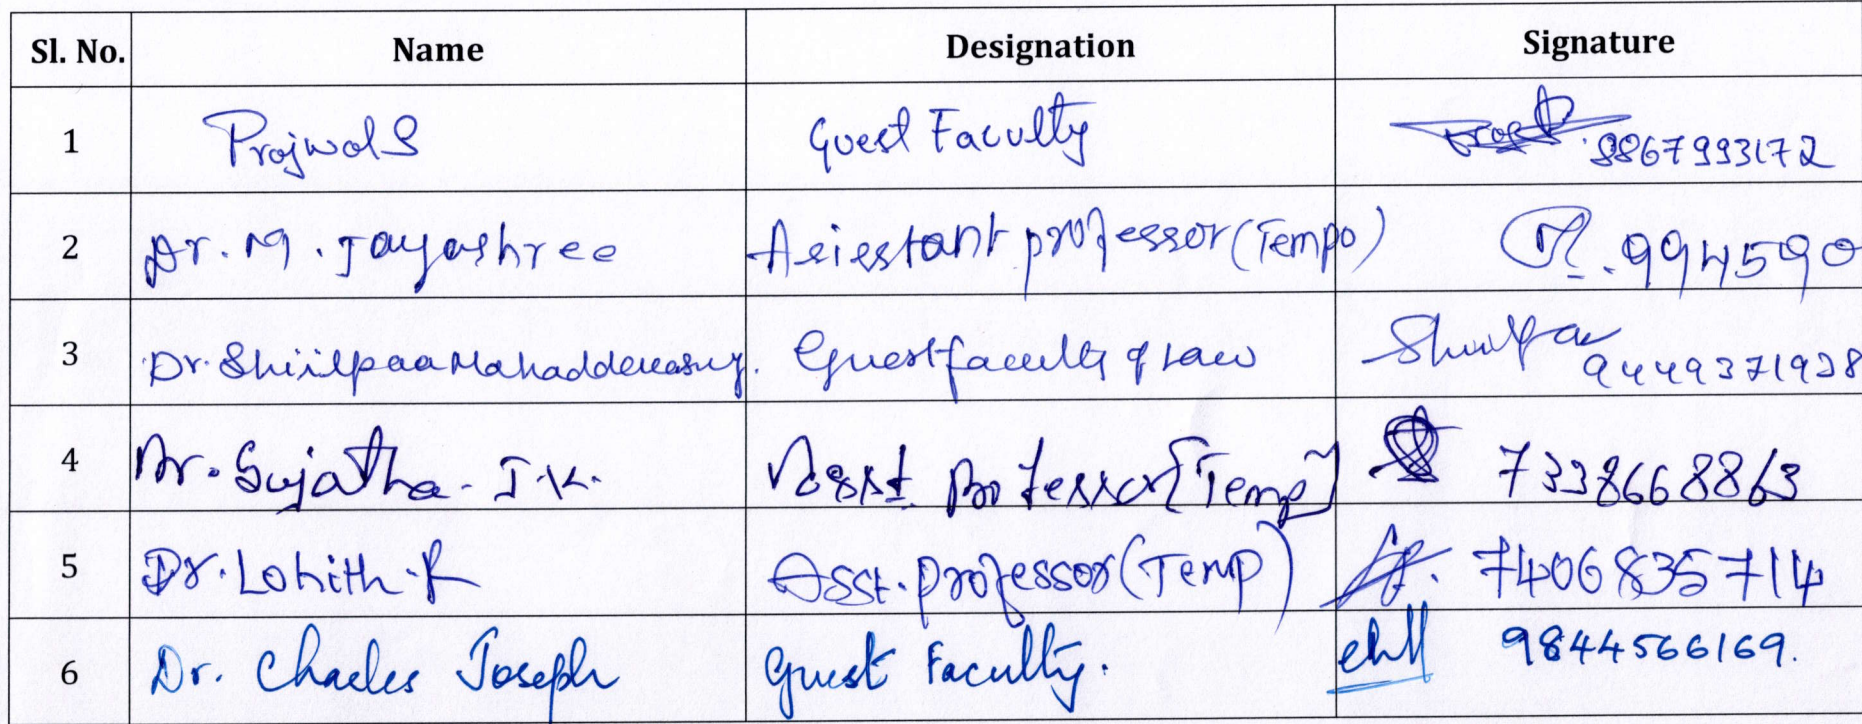 Sl. No. Name Designation Signature
1 Prajwal S Guest Faculty 8867993172
2 Dr. M. Jayashree Asiestant professor (Tempo) 994590
3 Dr. Shiilpaa Mahaddevasny. Guest faculty of Law Shiilpa 9449371928
4 Dr. Sujatha. J.K. Asst. Professor [Temp] 7338668863
5 Dr. Lohith. K Asst. professor (Temp) 7406835714
6 Dr. Charles Joseph Guest Faculty. 9844566169.